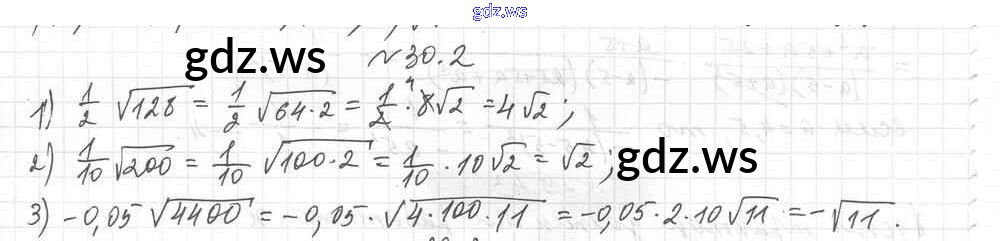 gdz.ws
gdz.ws № 30.2
1) 1/2 √128 = 1/2 √64·2 = 1/2 · 8√2 = 4√2;
2) 1/10 √200 = 1/10 √100·2 = 1/10 · 10√2 = √2; gdz.ws
3) -0,05 √4400 = -0,05 · √4·100·11 = -0,05·2·10√11 = -√11.